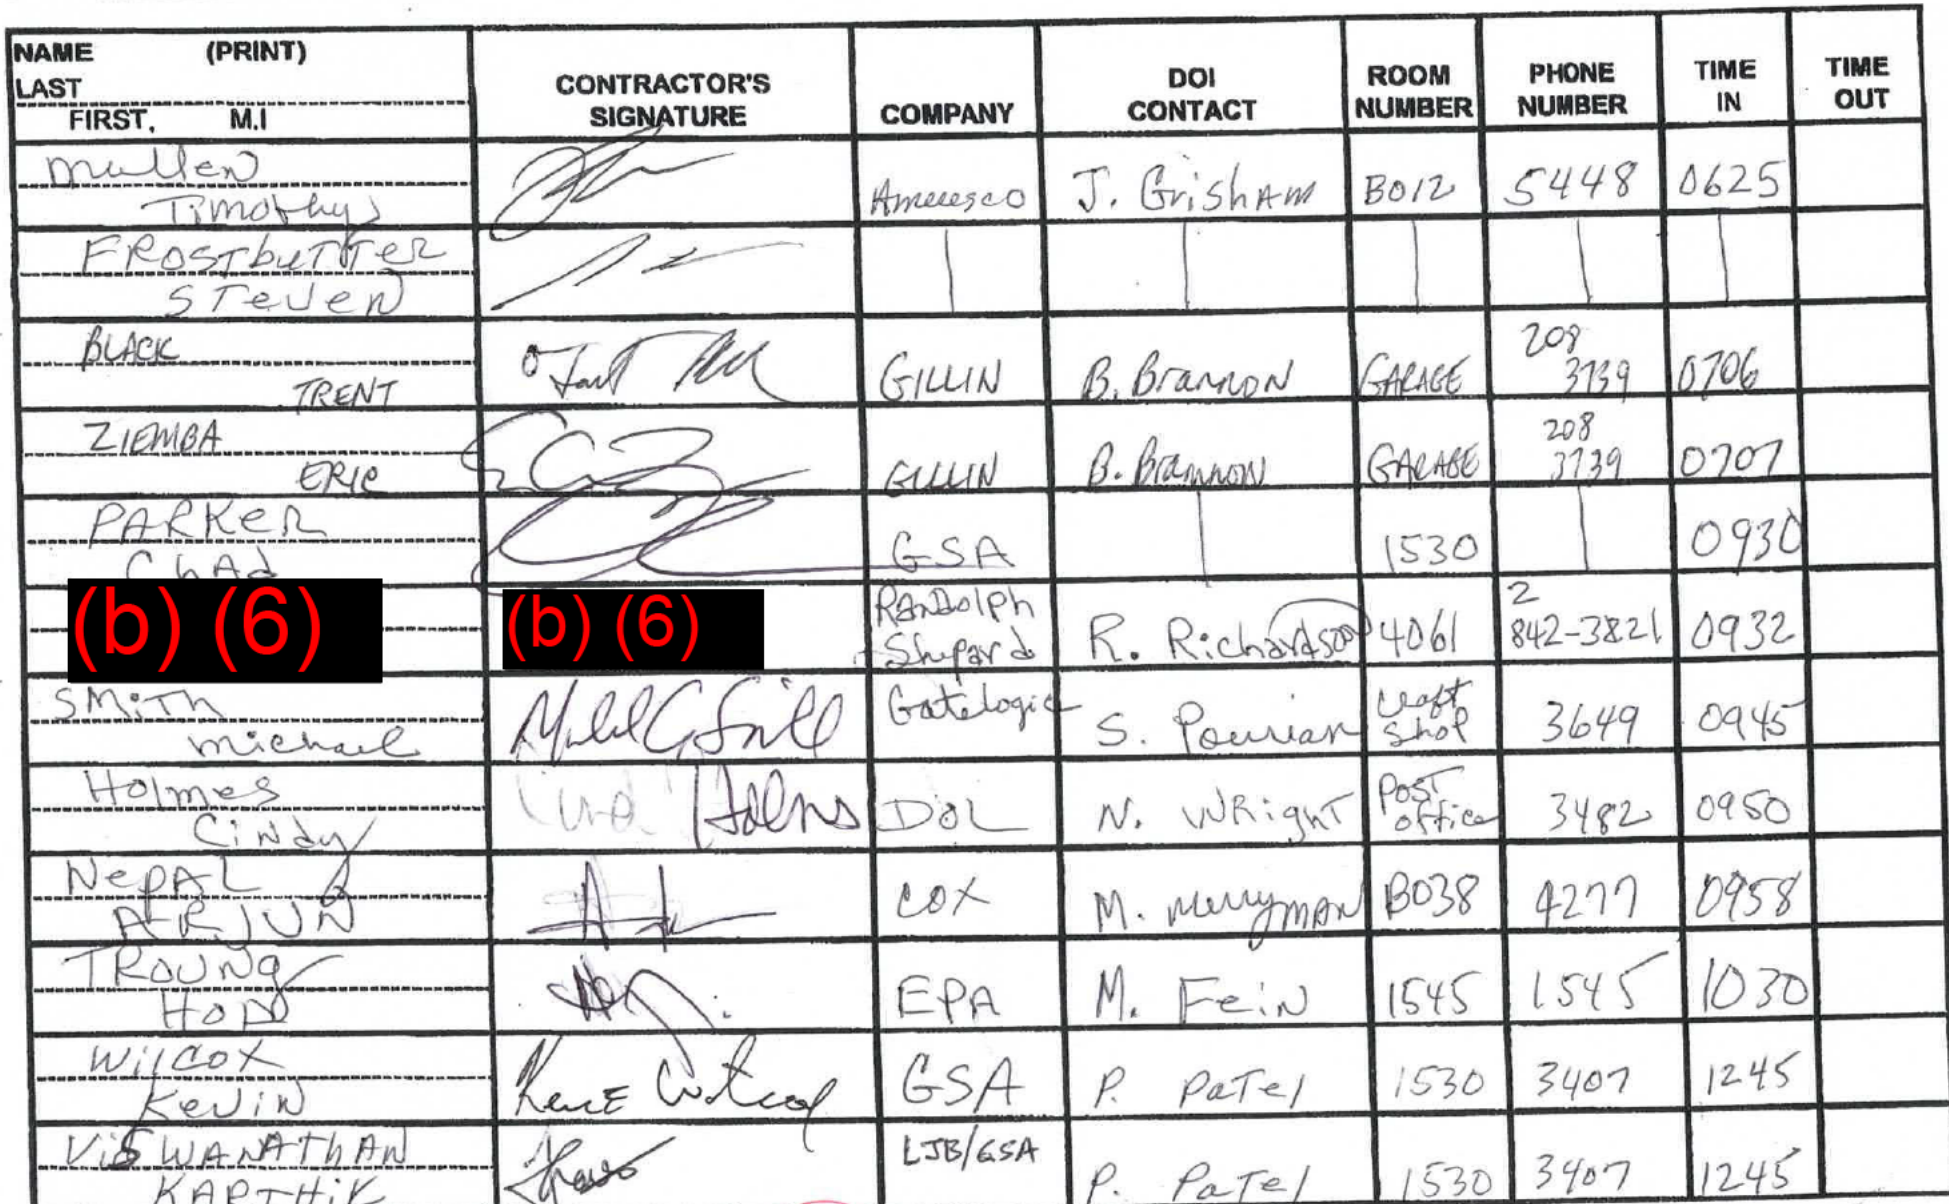 NAME (PRINT)
LAST
FIRST, M.I
CONTRACTOR'S
SIGNATURE
COMPANY
DOI
CONTACT
ROOM
NUMBER
PHONE
NUMBER
TIME
IN
TIME
OUT
Mullen
Timothy
Ameresco J. Grisham B012 5448 0625
FROSTbuTTer
STeven
BLACK
TRENT
GILLIN B. Brannon GARAGE 208
3739 0706
ZIEMBA
ERIC
GILLIN B. Brannon GARAGE 208
3739 0707
PARKER
ChAd
GSA 1530 0930
(b) (6) (b) (6)
RAndolph
Shepard R. Richardson 4061 2
842-3821 0932
SMiTh
michael
Gatelogic S. Pourian craft
shop 3649 0945
Holmes
Cindy
DOL N. WRighT POST
office 3482 0950
NepAL
ARJUN
COX M. merrymAN B038 4277 0958
TROUNg
HOP
EPA M. FeiN 1545 1545 1030
Wilcox
KeviN
GSA P. PaTel 1530 3407 1245
VisWANAThAN
KARTHiK
LJB/GSA P. PaTel 1530 3407 1245